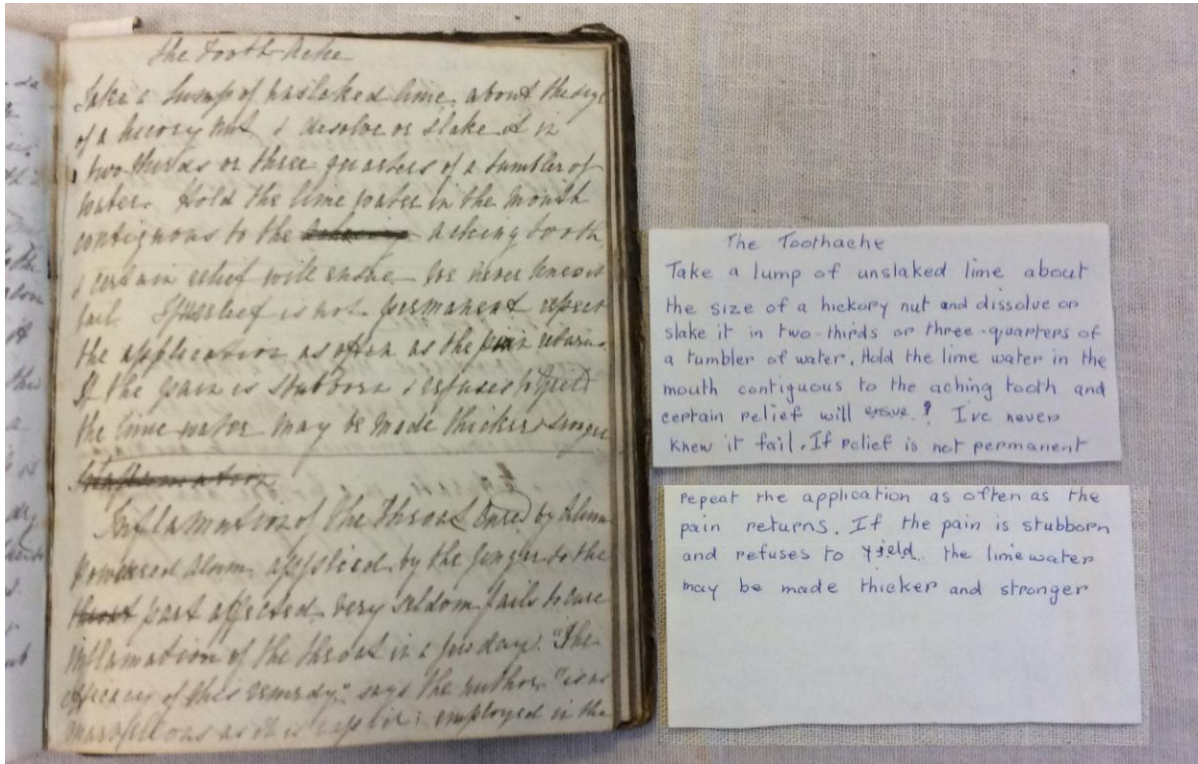 The Tooth Ache
Take a lump of unslaked lime about the size
of a hicory nut & desolve or slake it in
two thirds or three quarters of a tumbler of
water. Hold the lime water in the mouth
contiguous to the aching tooth
& certain relief will ensue we never knew it
fail. If relief is not permanent repeat
the application as often as the pain returns.
If the pain is stubborn & refuses to yield
the lime water may be made thicker &
Inflamation
Inflamation of the throat Cured by Alum
Powdered alum applied by the finger to the
throat part affected, very seldom fails to cure
inflamation of the throat in a few days. "The
efficacy of this remedy," says the author, "is as
as it is employed in the
The Toothache
Take a lump of unslaked lime about
the size of a hickory nut and dissolve or
slake it in two-thirds or three-quarters of
a tumbler of water. Hold the lime water in the
mouth contiguous to the aching tooth and
certain relief will ensue ? I've never
knew it fail. If relief is not permanent
repeat the application as often as the
pain returns. If the pain is stubborn
and refuses to yield the limewater
may be made thicker and stronger